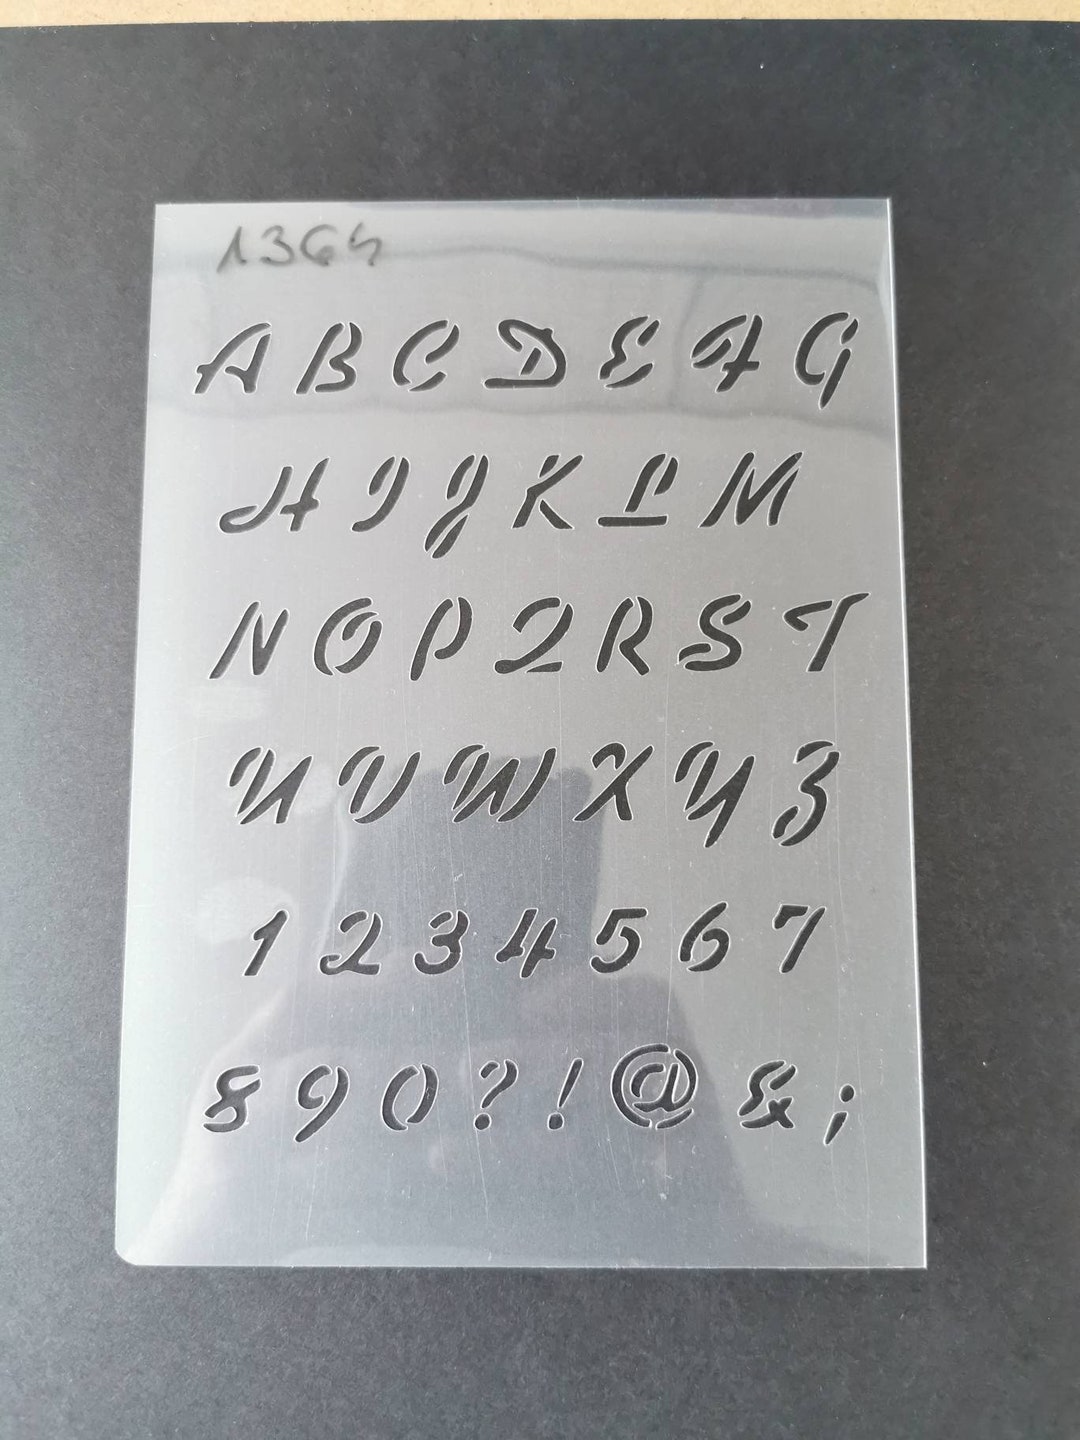 1364
A B C D E F G
H I J K L M
N O P Q R S T
U V W X Y Z
1 2 3 4 5 6 7
8 9 0 ? ! @ & ;